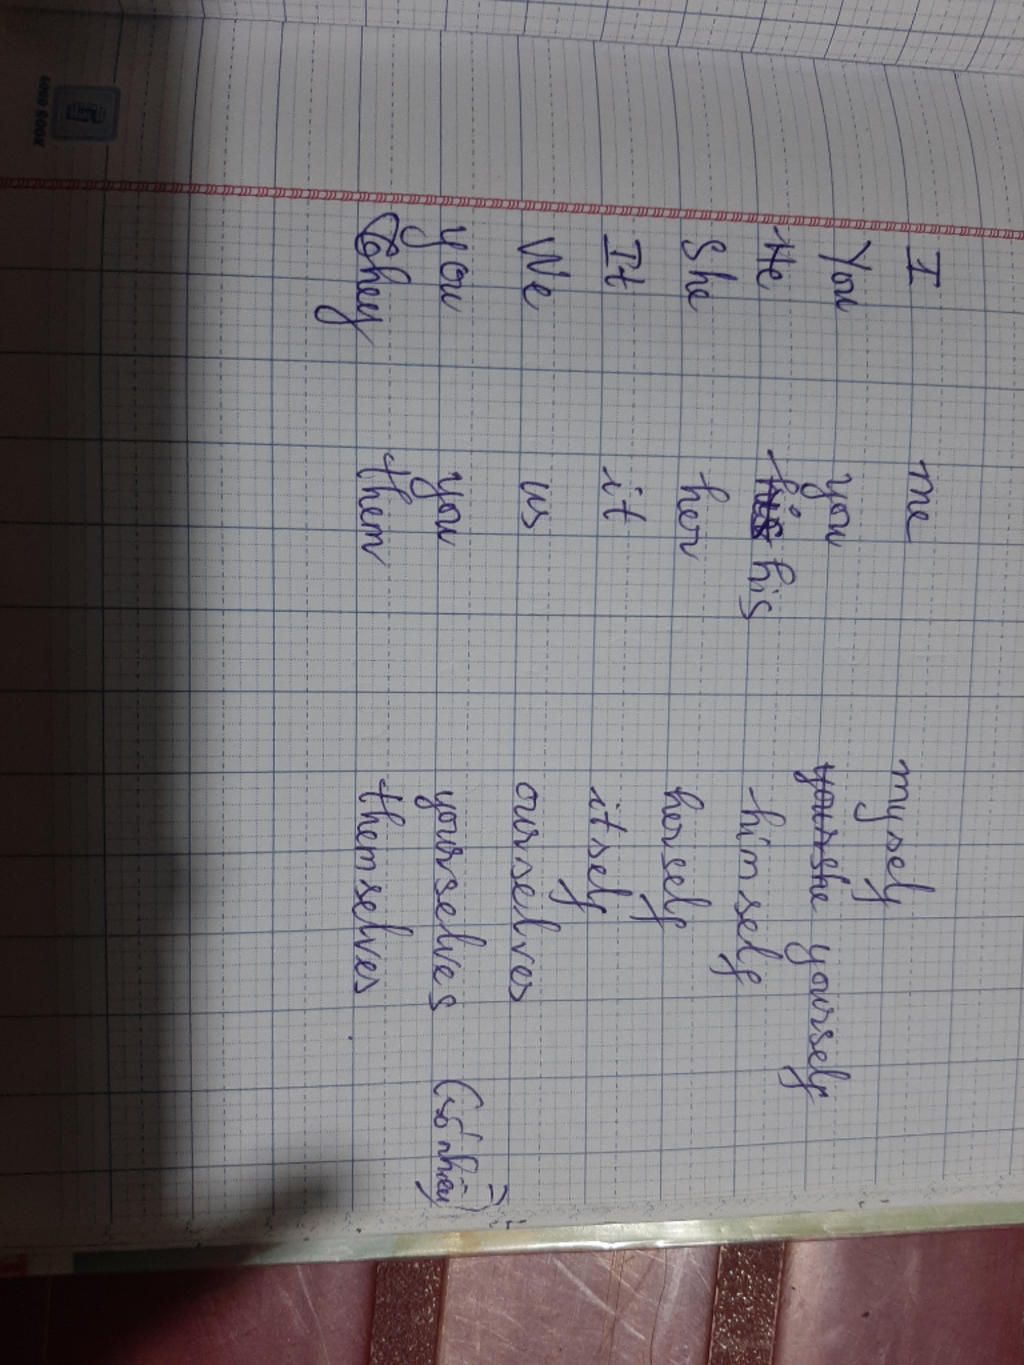 I me myself
You you yourshe yourself
He his his himself
She her herself
It it itself
We us ourselves
you you yourselves (số nhiều)
They them themselves
GOOD BOOK